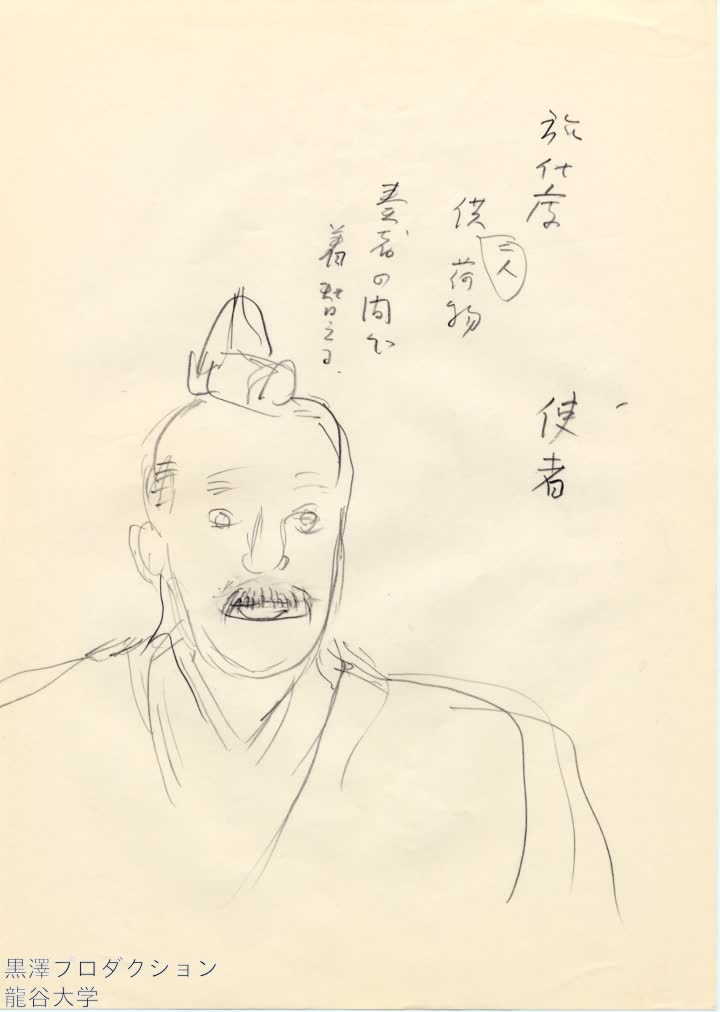 旅仕度
供 二人 荷物
の間に
着替える.
使者
黒澤プロダクション
龍谷大学